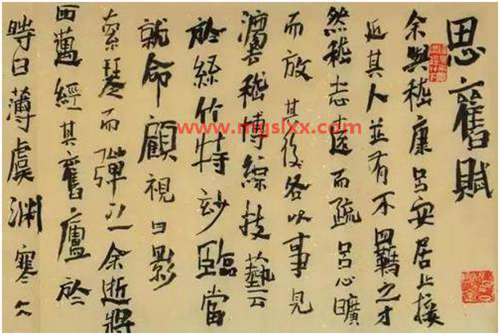 思舊賦
余與嵇康呂安居止接
近其人並有不羈之才
然嵇志遠而疏呂心曠
而放其後各以事見
灋嵇博綜技藝
於絲竹特妙臨當
就命顧視日影
索琴而彈之余逝將
西邁經其舊廬於
時日薄虞淵寒仌
www.mgslxx.com